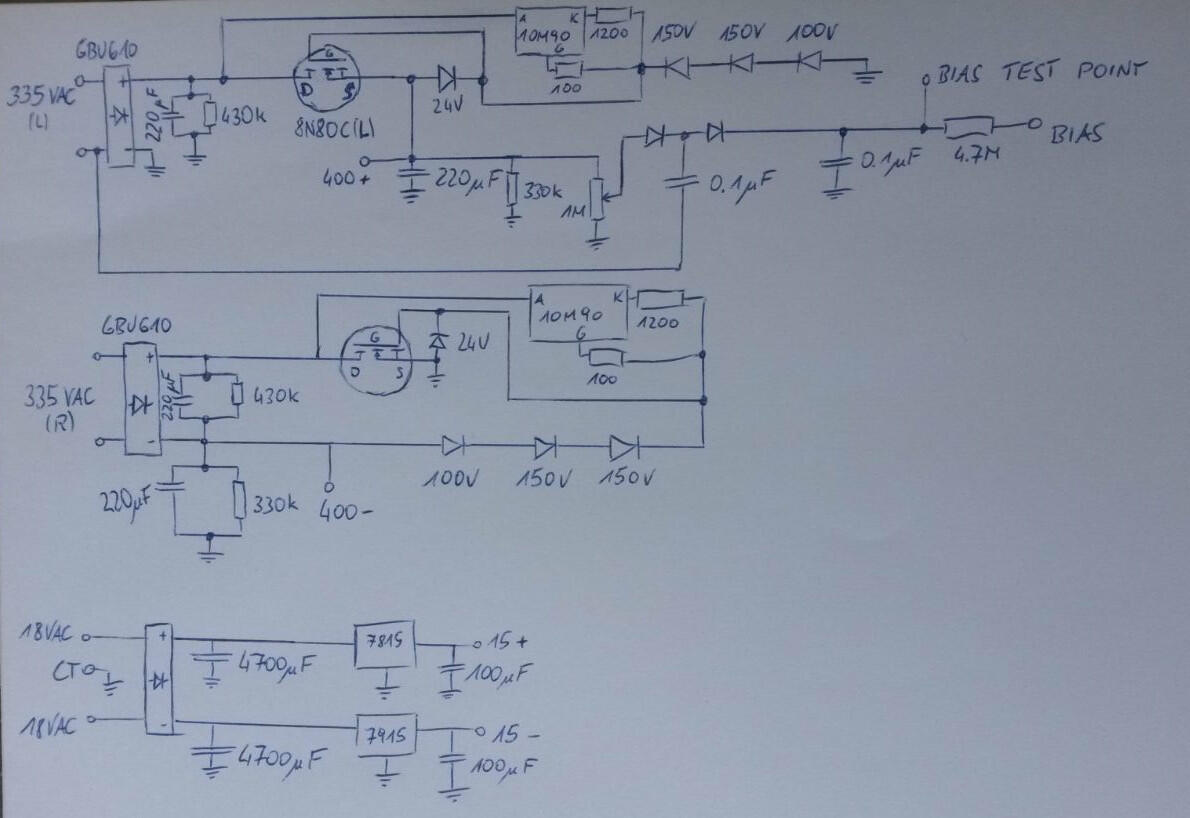 GBU610
335 VAC
(L)
+
-
220µF
430k
D
G
S
8N80C(L)
24V
A
K
10M90
G
1200
100
150V
150V
100V
400+
220µF
330k
1M
0.1µF
0.1µF
BIAS TEST POINT
4.7M
BIAS
GBU610
335 VAC
(R)
+
-
220µF
430k
G
D
S
24V
A
K
10M90
G
1200
100
220µF
330k
400-
100V
150V
150V
18VAC
CT
18VAC
+
-
4700µF
7815
15+
100µF
4700µF
7915
15-
100µF